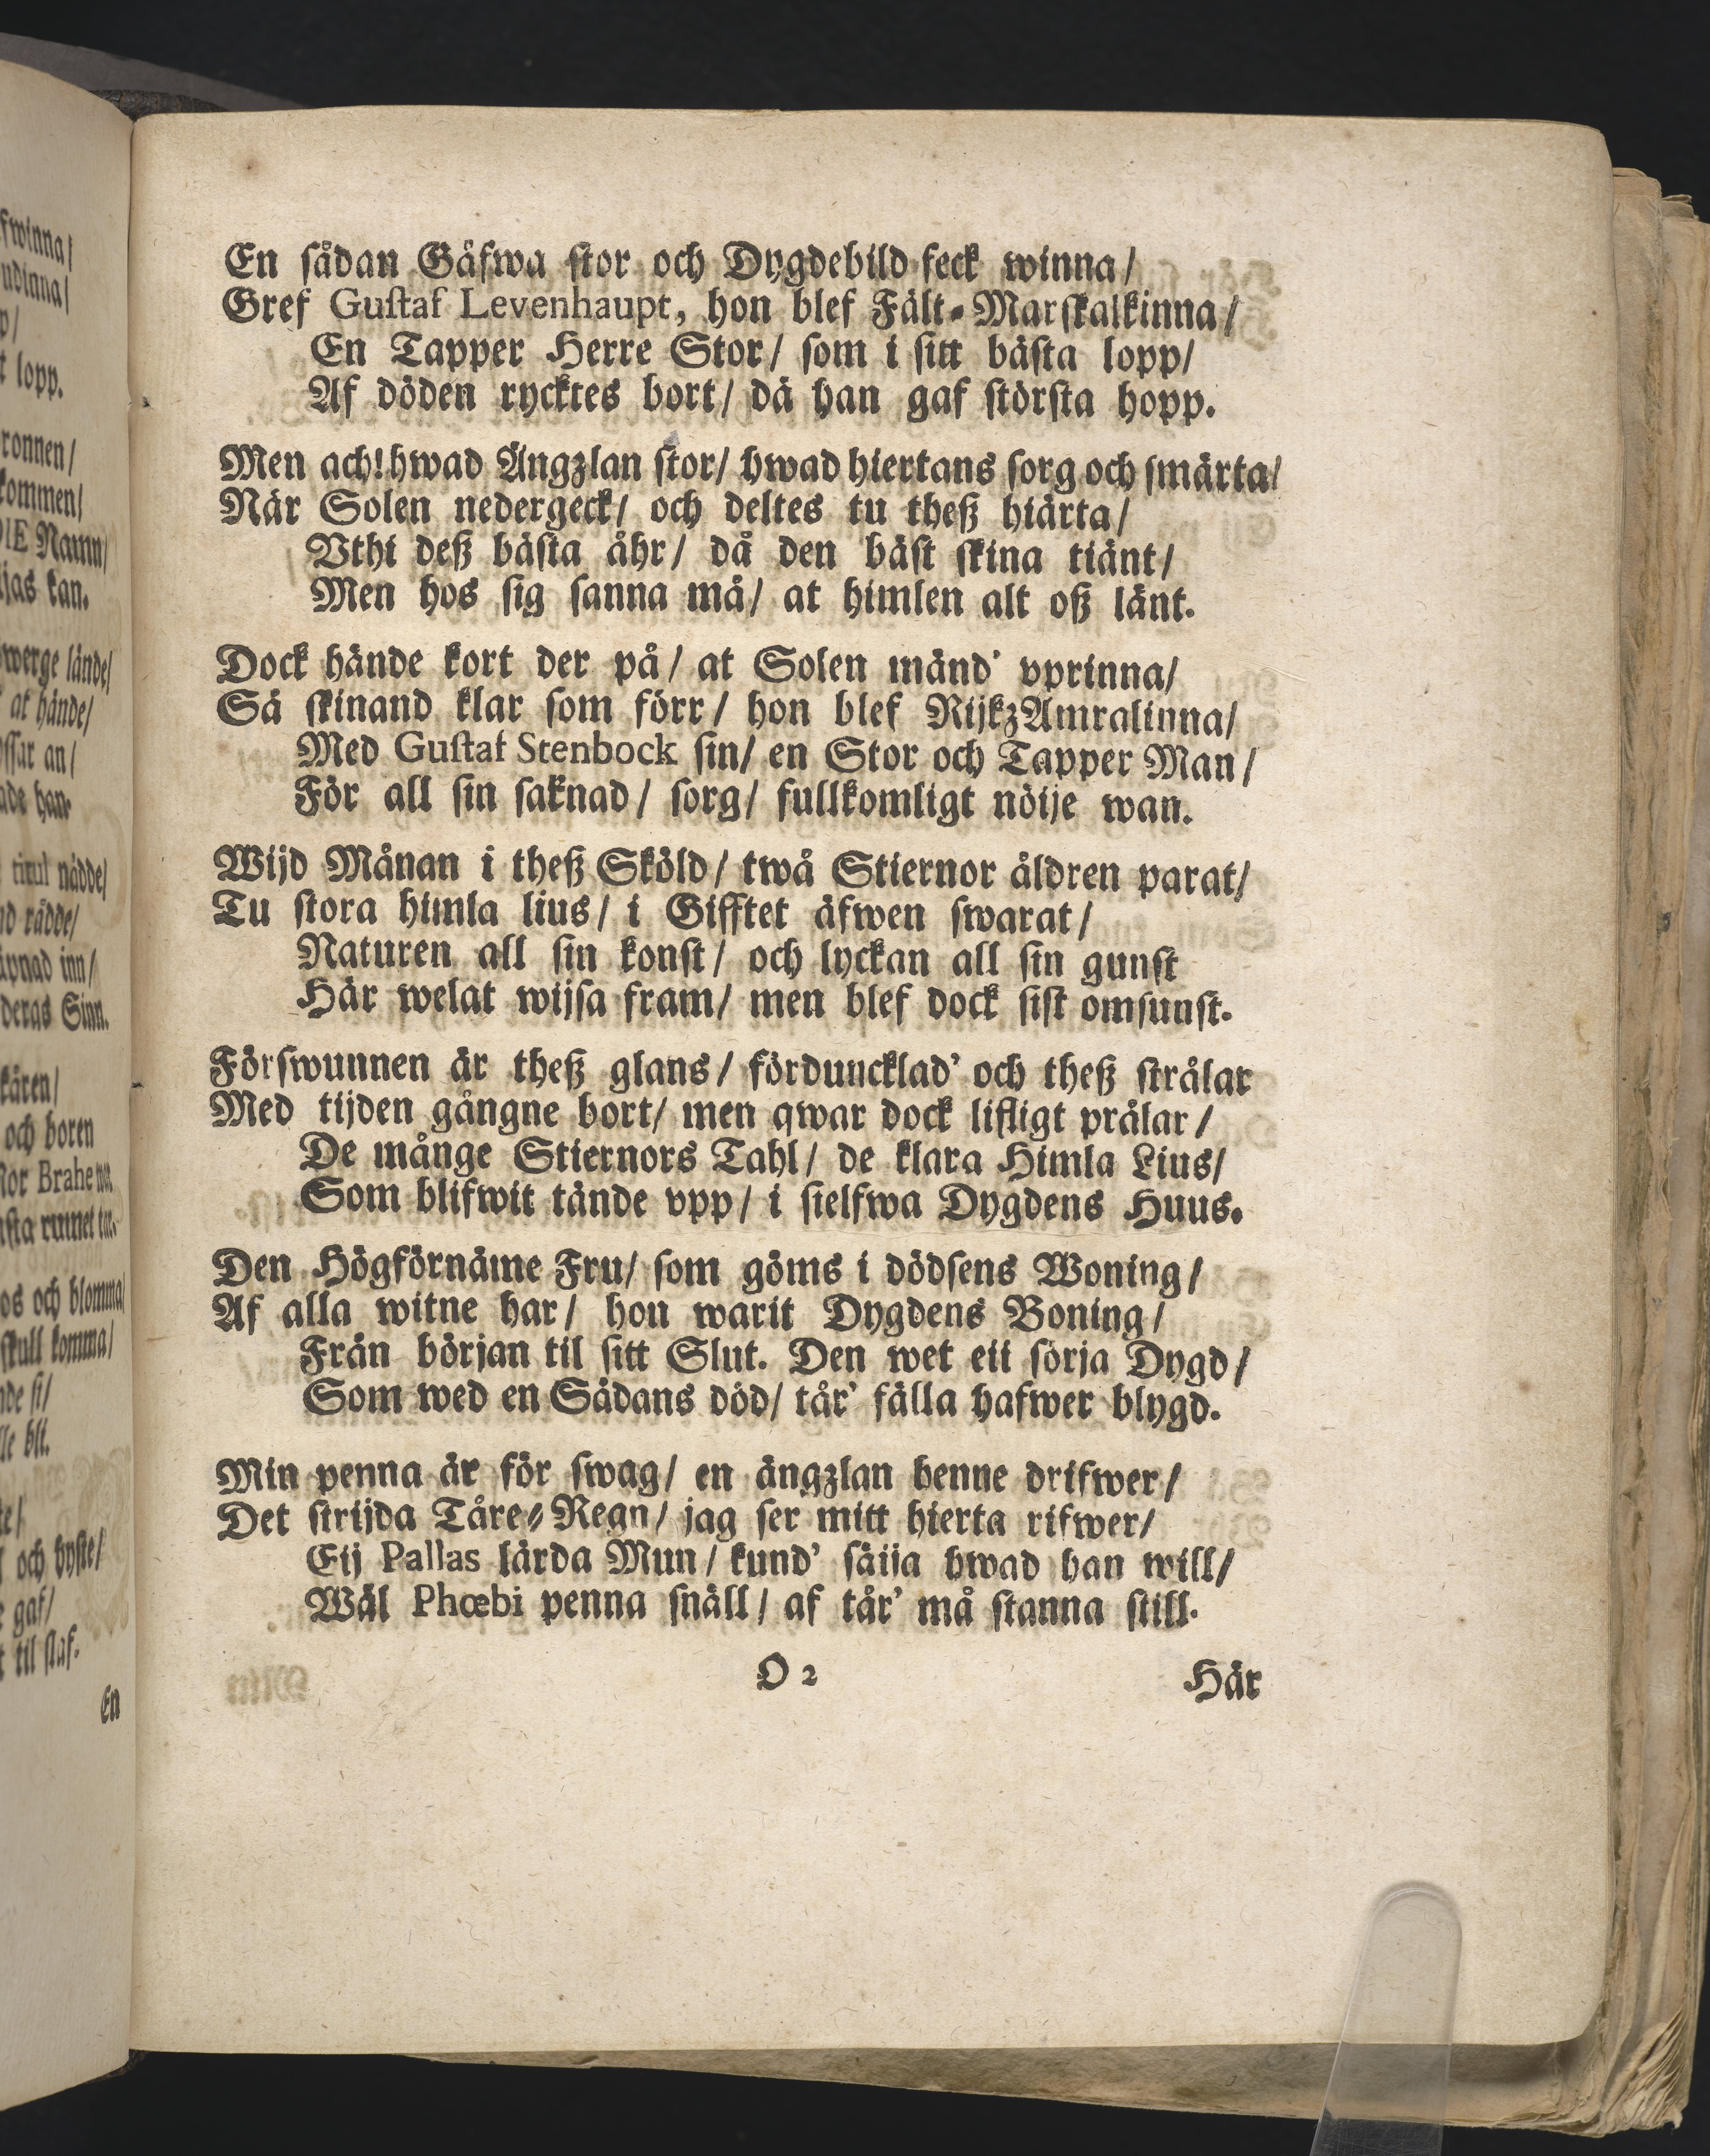 En sådan Gåfwa stor och Dygdebild feck winna/
Gref Gustaf Levenhaupt, hon blef Fält-Marskalkinna/
En Tapper Herre Stor/ som i sitt bästa lopp/
Af döden rycktes bort/ då han gaf största hopp.
Men ach! hwad Ängzlan stor/ hwad hiertans sorg och smärta/
När Solen nedergeck/ och deltes tu theß hiärta/
Vthi deß bästa åhr/ då den bäst skina tiänt/
Men hos sig sanna må/ at himlen alt oß länt.
Dock hände kort der på/ at Solen mänd' vprinna/
Så skinand klar som förr/ hon blef RijkzAmralinna/
Med Gustaf Stenbock sin/ en Stor och Tapper Man/
För all sin saknad/ sorg/ fullkomligt nöije wan.
Wijd Månan i theß Sköld/ twå Stiernor åldren parat/
Tu stora himla lius/ i Gifftet äfwen swarat/
Naturen all sin konst/ och lyckan all sin gunst
Här welat wijsa fram/ men blef dock sist omsunst.
Förswunnen är theß glans/ förduncklad' och theß strålar
Med tijden gångne bort/ men qwar dock lifligt prålar/
De månge Stiernors Tahl/ de klara Himla Lius/
Som blifwit tände vpp/ i sielfwa Dygdens Huus.
Den Högförnäme Fru/ som göms i dödsens Woning/
Af alla witne har/ hon warit Dygdens Boning/
Från början til sitt Slut. Den wet eii sörja Dygd/
Som wed en Sådans död/ tår' fälla hafwer blygd.
Min penna är för swag/ en ängzlan henne drifwer/
Det strijda Tåre-Regn/ jag ser mitt hierta rifwer/
Eij Pallas lärda Mun/ kund' säija hwad han will/
Wäl Phœbi penna snäll/ af tår' må stanna still.
O 2
Här